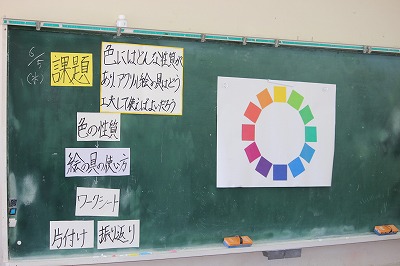 6/5
(水)
課題
色にはどんな性質が
あり、アクリル絵の具はどう
工夫して使えばよいだろう
色の性質
絵の具の使い方
ワークシート
片付け
振り返り